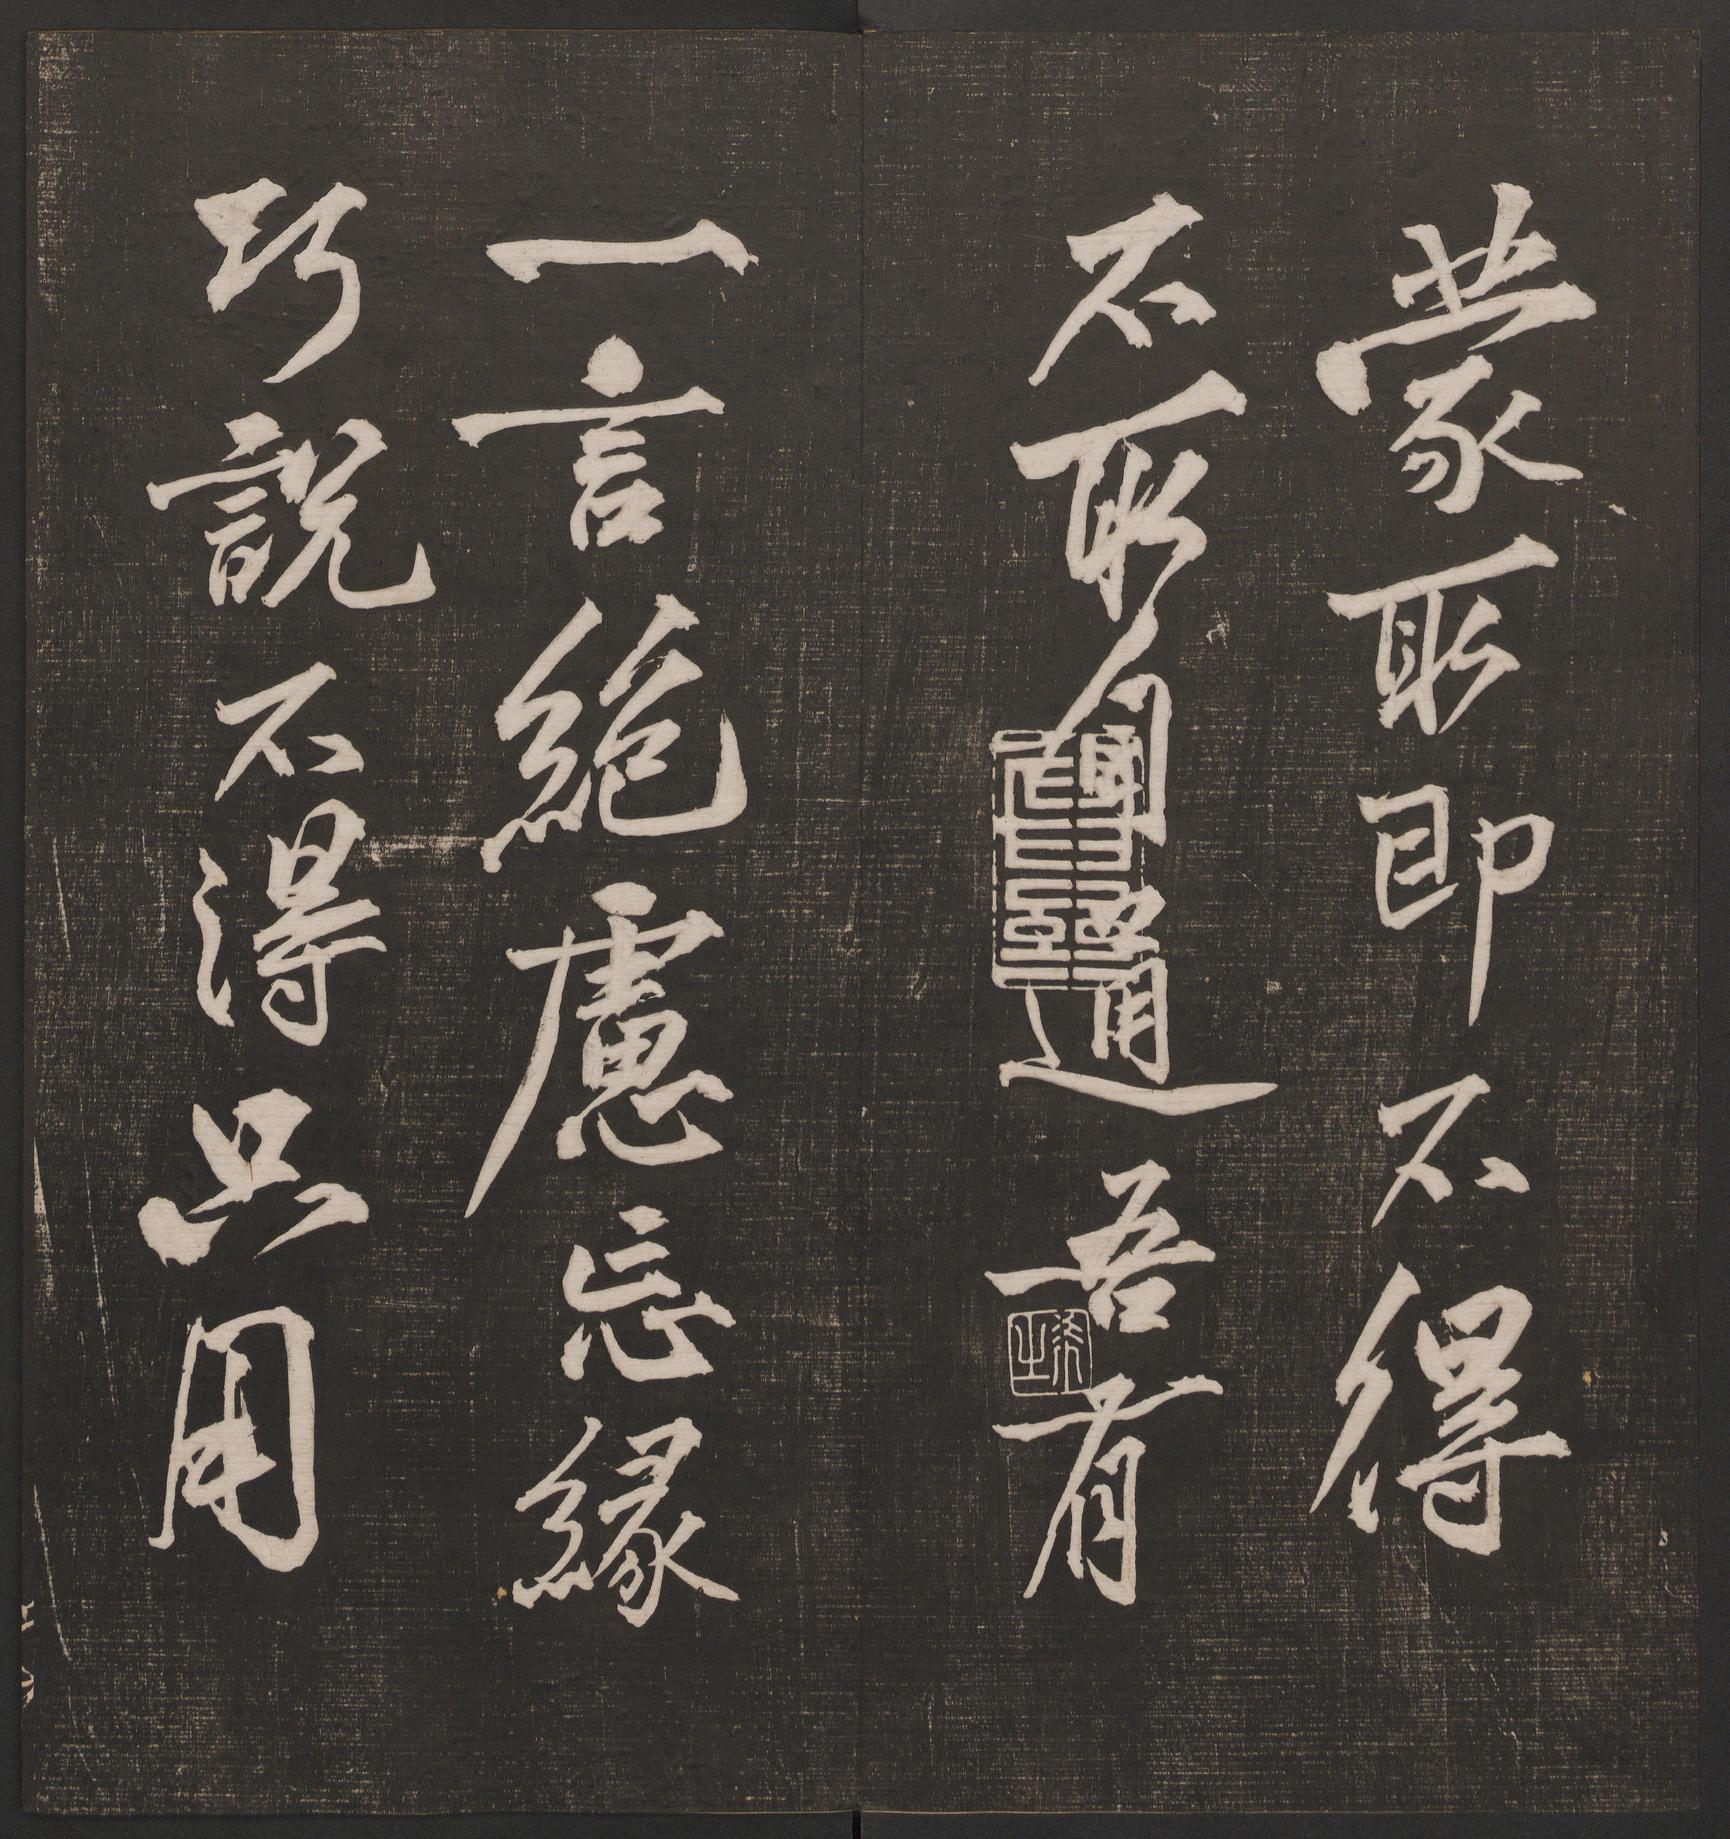 蒙取即不得
不取自通吾有
一言絕慮忘緣
巧說不得只用